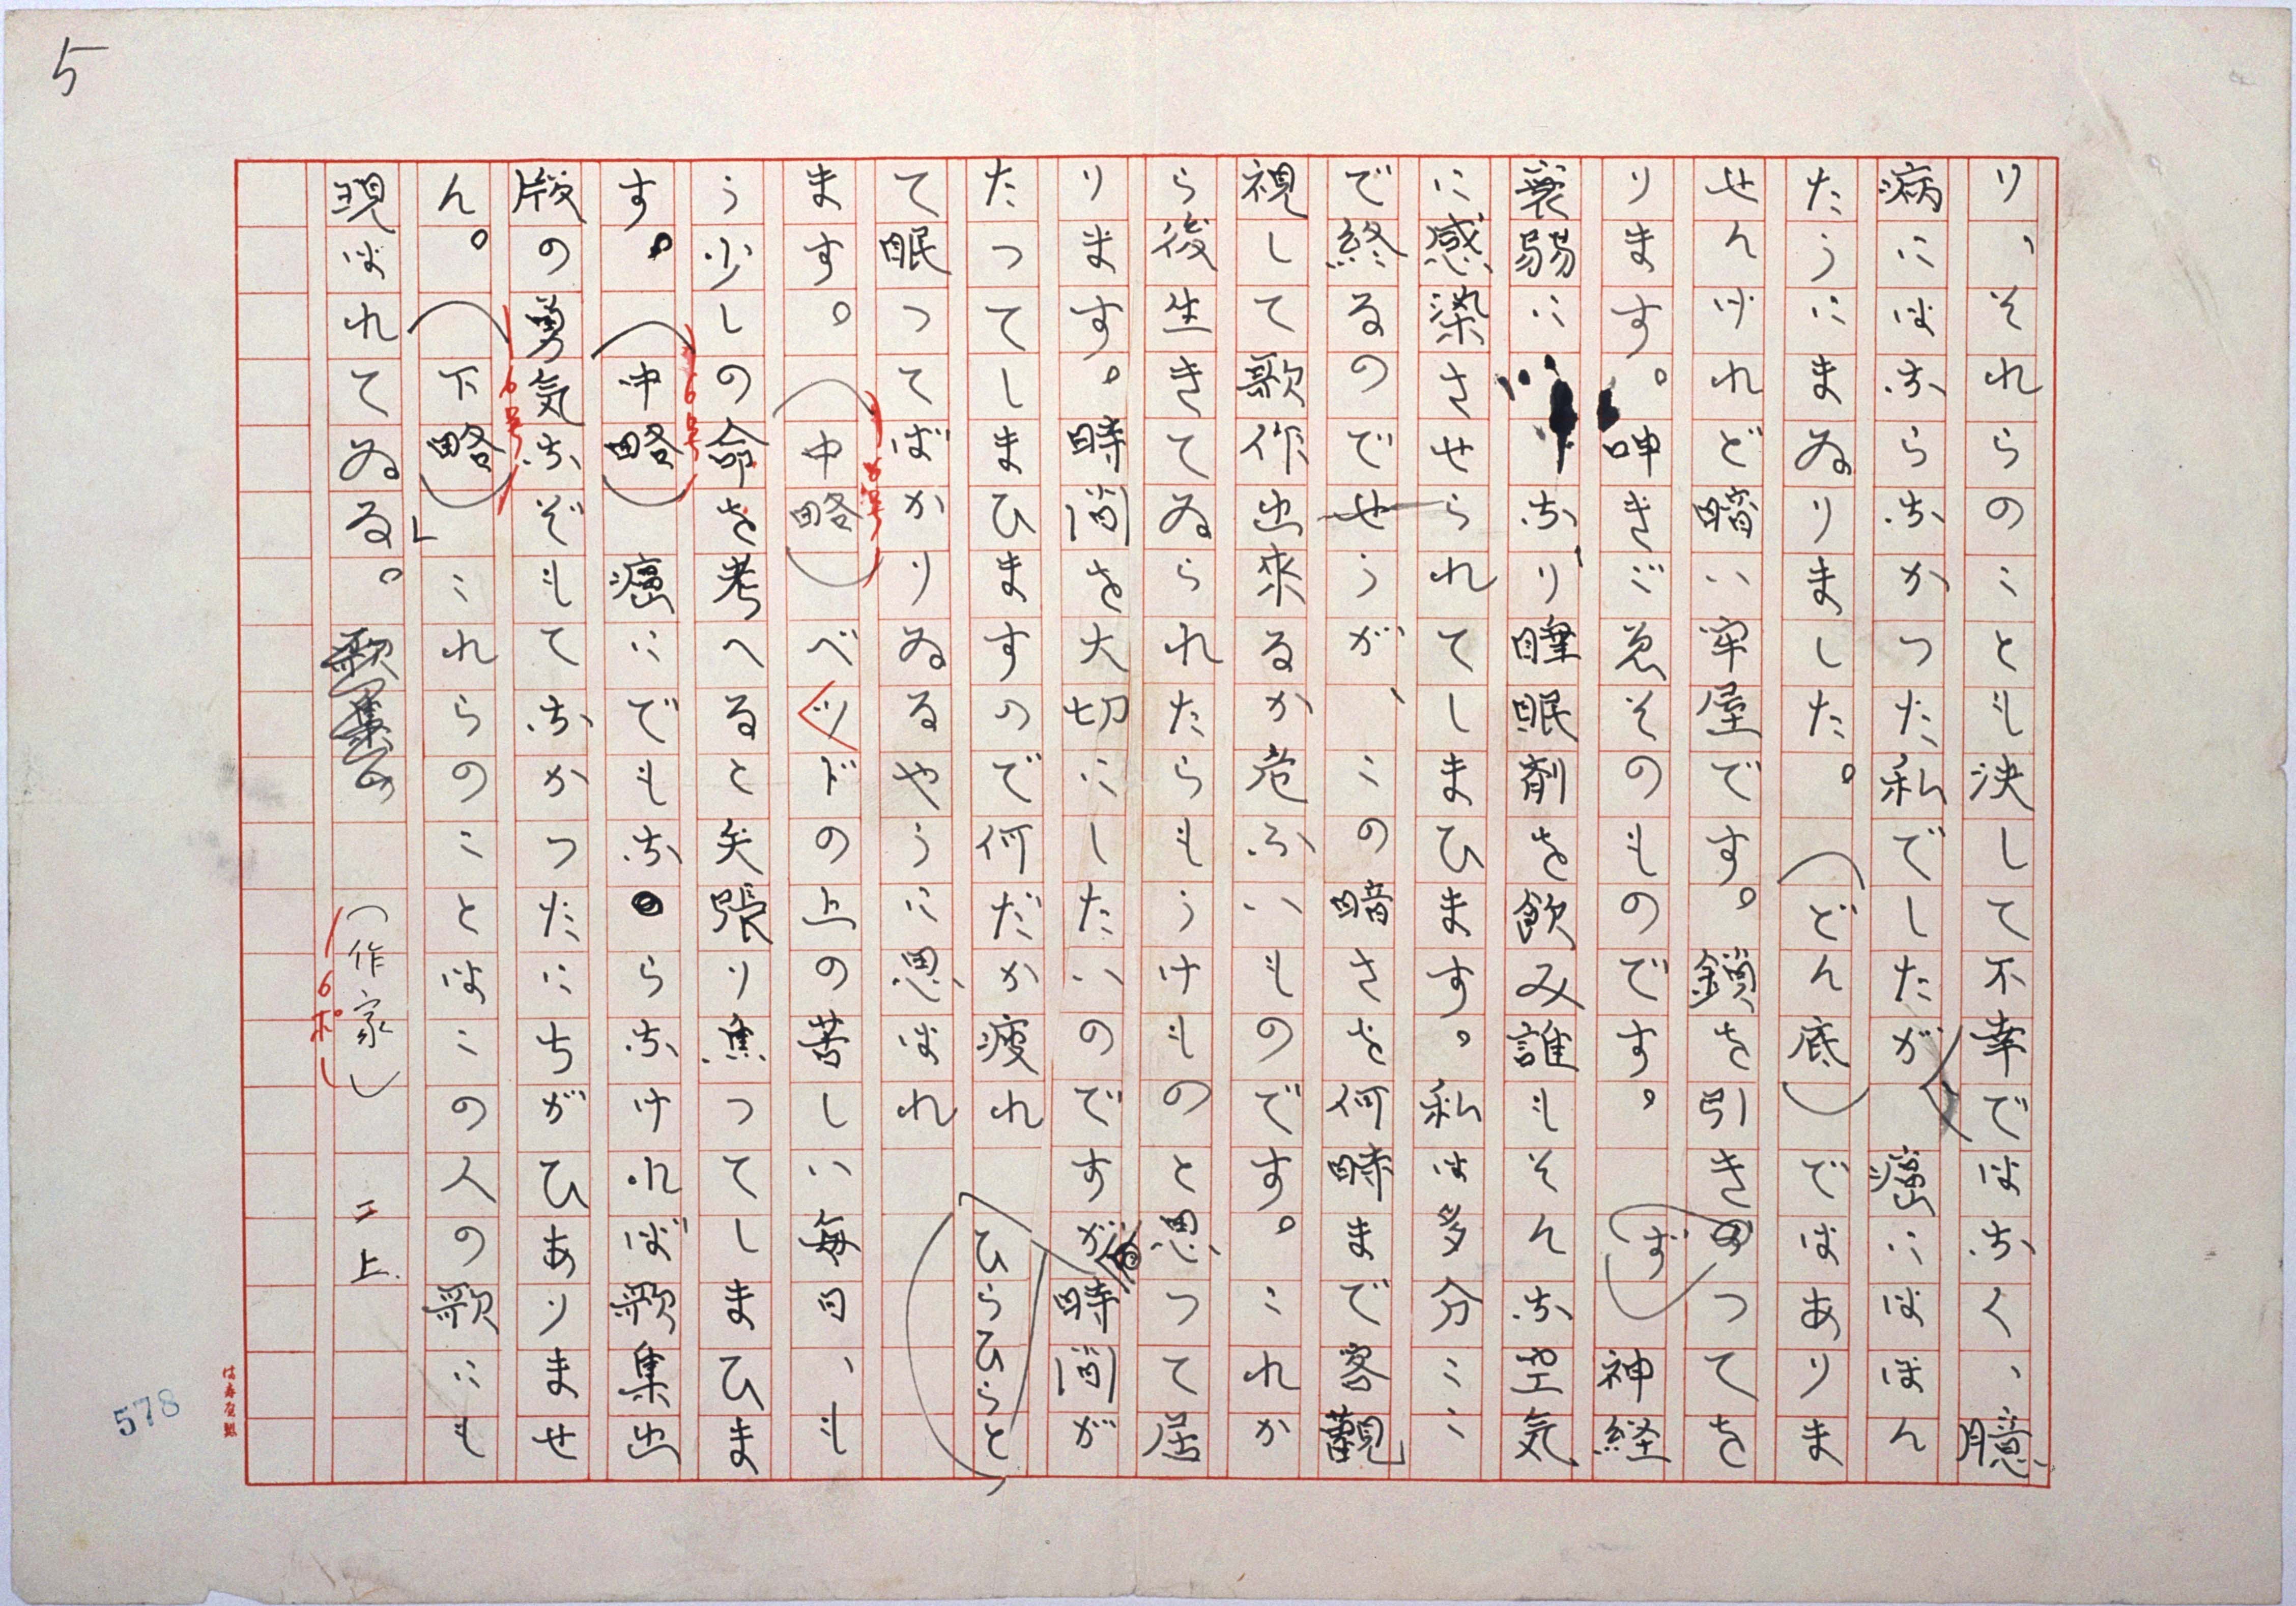 5
り、それらのことも決して不幸ではなく、臆
病にはならなかつた私でしたが 癌にはほん
たうにまゐりました。(どん底)ではありま
せんけれど暗い牢屋です。鎖を引きずつてを
ります。呻きごゑそのものです。 神経
衰弱になり睡眠剤を飲み誰もそんな空気
に感染させられてしまひます。私は多分ここ
で終るのでせうが、この暗さを何時まで客観
視して歌作出来るか危ふいものです。これか
ら後生きてゐられたらもうけものと思つて居
ります。時間を大切にしたいのですが時間が
たつてしまひますので何だか疲れ ひらひらと
て眠つてばかりゐるやうに思はれ
ます。(中略)ベツドの上の苦しい毎日、も
う少しの命を考へると矢張り焦つてしまひま
す。(中略)癌にでもならなければ歌集出
版の勇気なぞもてなかつたにちがひありませ
ん。(下略)」これらのことはこの人の歌にも
現はれてゐる。 (作家) 二上
6号
6号
6号
6ポ
578